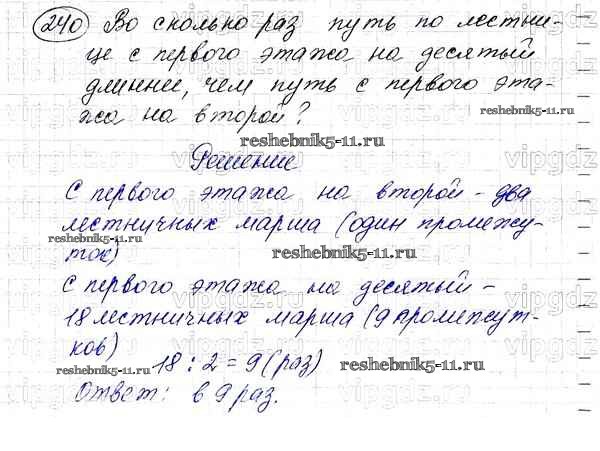 240 Во сколько раз путь по лестни-
це с первого этажа на десятый
длиннее, чем путь с первого эта-
жа на второй?
reshebnik5-11.ru
reshebnik5-11.ru
Решение
С первого этажа на второй - два
лестничных марша (один промежу-
ток)
reshebnik5-11.ru
reshebnik5-11.ru
С первого этажа на десятый -
18 лестничных марша (9 промежут-
ков)
18 : 2 = 9 (раз)
reshebnik5-11.ru
reshebnik5-11.ru
Ответ: в 9 раз.